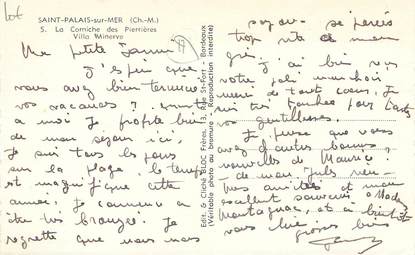 Lot
SAINT-PALAIS-sur-MER (Ch.-M.)
5. La Corniche des Pierrières
Villa Minerve
Ma petite
J'espère que
vous avez bien terminé
vos vacances ? quant
à moi je profite bien
de mon séjour ici,
je suis tous les jours
sur la plage, le temps
est magnifique cette
année. Je commence à
être très bronzée. Je
regrette que nous nous
Edit. & Cliché BLOC Frères, 13, Rue St-Fort - Bordeaux
(Véritable photo au bromure - Reproduction interdite)
soyons se
trop vite à mon
gré,
J'ai bien reçu
votre joli mouchoir
merci de tout coeur, je
suis très touchée pour toutes
vos gentillesses.
Je pense que vous
avez d'autres bonnes
nouvelles de Maurice ?
de mon
Mes amitiés et mon
excellent souvenir à Made
Montagnac, et à bientôt
vous
grosses bises